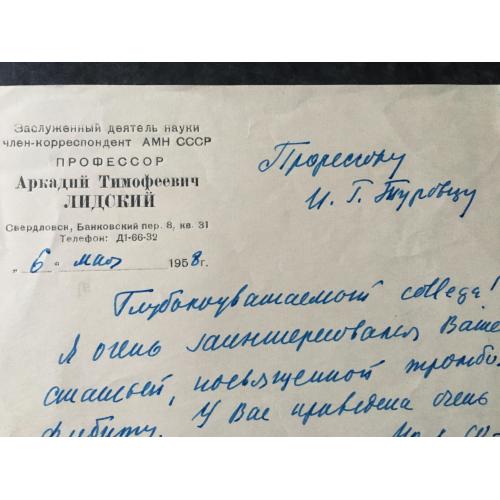 Заслуженный деятель науки
член-корреспондент АМН СССР
ПРОФЕССОР
Аркадий Тимофеевич
ЛИДСКИЙ
Свердловск, Банковский пер. 8, кв. 31
Телефон: Д1-66-32
„ 6 " мая 1958 г.
Профессору
И. Г. Туровцу
Глубокоуважаемый collega!
Я очень заинтересовался Вашей
статьей, посвященной тромбо
флебиту. У Вас приведена очень